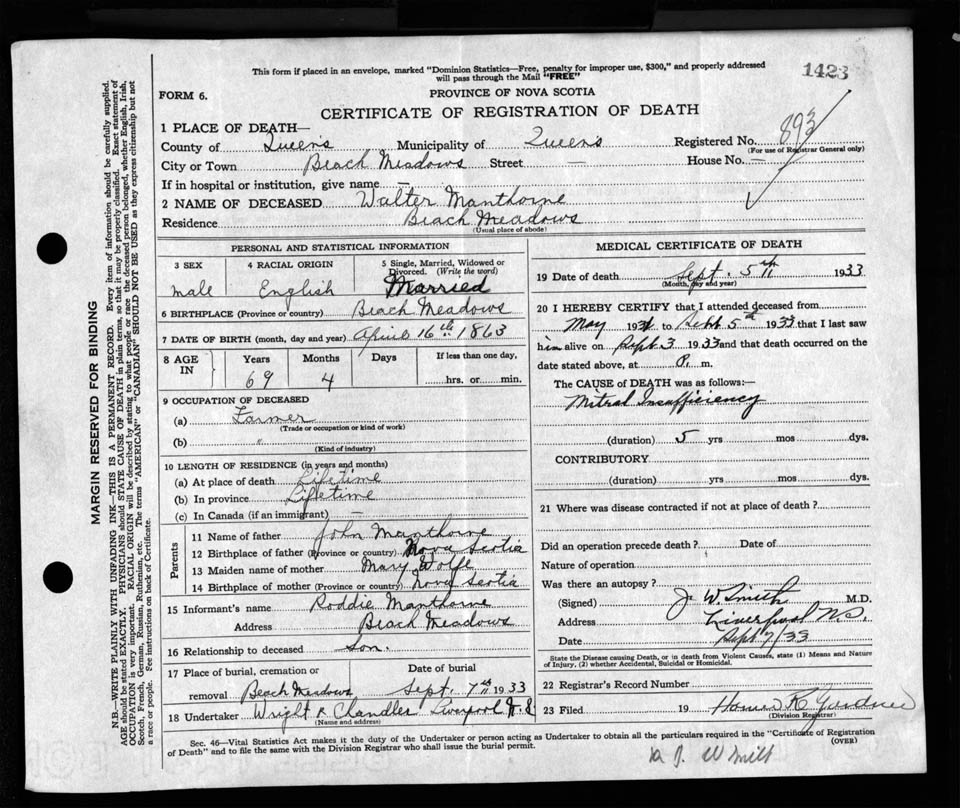 This form if placed in an envelope, marked "Dominion Statistics—Free, penalty for improper use, $300," and properly addressed
will pass through the Mail "FREE"
1423
FORM 6.
PROVINCE OF NOVA SCOTIA
CERTIFICATE OF REGISTRATION OF DEATH
893
1 PLACE OF DEATH—
County of Queens Municipality of Queens Registered No.
(For use of Registrar General only)
City or Town Beach Meadows Street — House No. —
If in hospital or institution, give name —
2 NAME OF DECEASED Walter Manthorne
Residence Beach Meadows
(Usual place of abode)
PERSONAL AND STATISTICAL INFORMATION
3 SEX 4 RACIAL ORIGIN 5 Single, Married, Widowed or
Divorced. (Write the word)
male English Married
6 BIRTHPLACE (Province or country) Beach Meadows
7 DATE OF BIRTH (month, day and year) April 16th 1863
8 AGE IN Years Months Days If less than one day,
69 4 hrs. or min.
9 OCCUPATION OF DECEASED
(a) Farmer
(Trade or occupation or kind of work)
(b) "
(Kind of industry)
10 LENGTH OF RESIDENCE (in years and months)
(a) At place of death Lifetime
(b) In province Lifetime
(c) In Canada (if an immigrant) —
Parents
11 Name of father John Manthorne
12 Birthplace of father (Province or country) Nova Scotia
13 Maiden name of mother Mary Wolfe
14 Birthplace of mother (Province or country) Nova Scotia
15 Informant's name Roddie Manthorne
Address Beach Meadows
16 Relationship to deceased son.
17 Place of burial, cremation or Date of burial
removal Beach Meadows Sept. 7th 1933
18 Undertaker Wright & Chandler Liverpool N.S
(Name and address)
MEDICAL CERTIFICATE OF DEATH
19 Date of death Sept. 5th 1933
(Month, day and year)
20 I HEREBY CERTIFY that I attended deceased from
May 193 to Sept 5th 1933 that I last saw
him alive on Sept. 3 1933 and that death occurred on the
date stated above, at P. m.
The CAUSE of DEATH was as follows:—
Mitral Insufficiency
(duration) 5 yrs mos dys.
CONTRIBUTORY
(duration) yrs mos dys.
21 Where was disease contracted if not at place of death?
Did an operation precede death? Date of
Nature of operation
Was there an autopsy?
(Signed) J. W. Smith M.D.
Address Liverpool N.S.
Date Sept 7/33
State the Disease causing Death, or in death from Violent Causes, state (1) Means and Nature
of Injury, (2) whether Accidental, Suicidal or Homicidal.
22 Registrar's Record Number
23 Filed 19 Homer R Gardner
(Division Registrar)
Sec. 46—Vital Statistics Act makes it the duty of the Undertaker or person acting as Undertaker to obtain all the particulars required in the "Certificate of Registration
of Death" and to file the same with the Division Registrar who shall issue the burial permit.
(OVER)
MARGIN RESERVED FOR BINDING
N.B.—WRITE PLAINLY WITH UNFADING INK—THIS IS A PERMANENT RECORD. Every item of information should be carefully supplied.
AGE should be stated EXACTLY. PHYSICIANS should STATE CAUSE OF DEATH in plain terms, so that it may be properly classified. Exact statement of
OCCUPATION is very important. RACIAL ORIGIN will be described by stating to what people or race the deceased person belonged, whether English, Irish,
Scotch, French, German, Russian, Ruthenian, etc. The terms "AMERICAN" or "CANADIAN" SHOULD NOT BE USED as they express citizenship but not
a race or people. See instructions on back of Certificate.